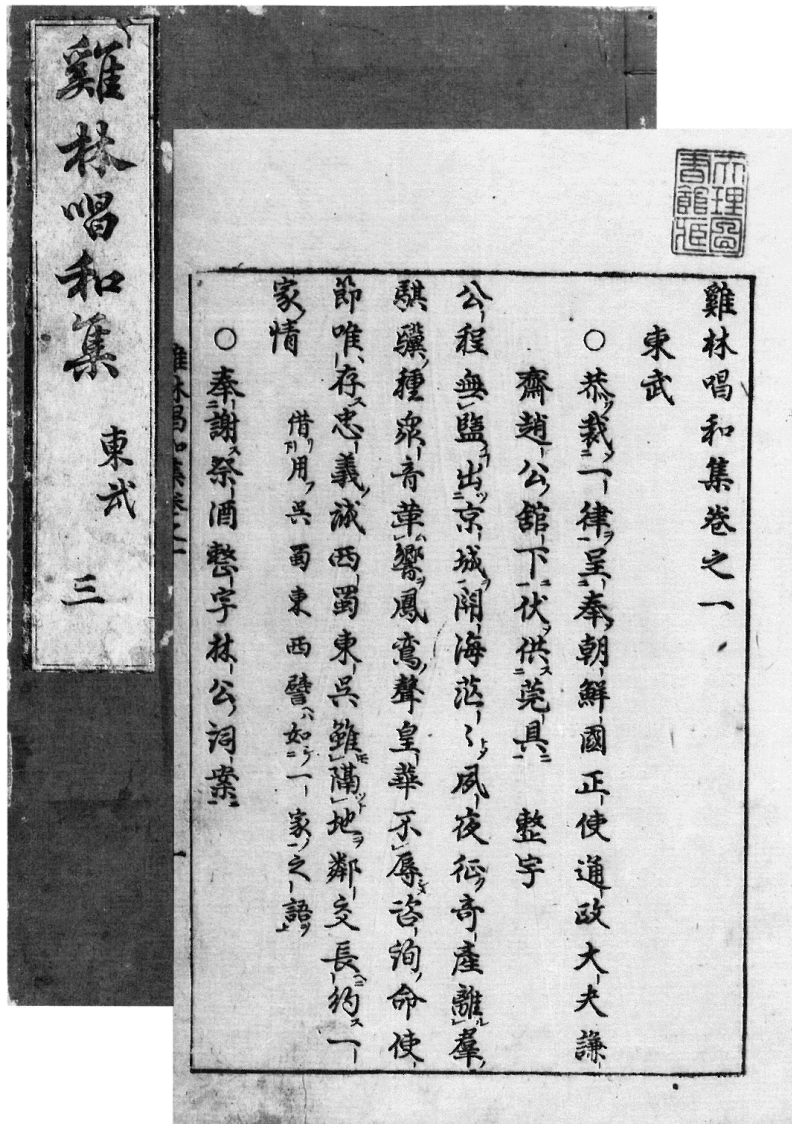 雞林唱和集 東武 三
天理圖
書館藏
雞林唱和集卷之一
東武
○恭裁一律呈奉朝鮮國正使通政大夫謙
齋趙公舘下伏供莞具 整宇
公程無盬出京城閱海茫〻夙夜征奇產離羣
騏驥種衆音革響鳳鸞聲皇華不辱咨詢命使
節唯存忠義誠西蜀東吳雖隔地鄰交長約一
家情 借用吳蜀東西譬如一家之語
○奉謝祭酒整宇林公詞案
雞林唱和集卷之一 一